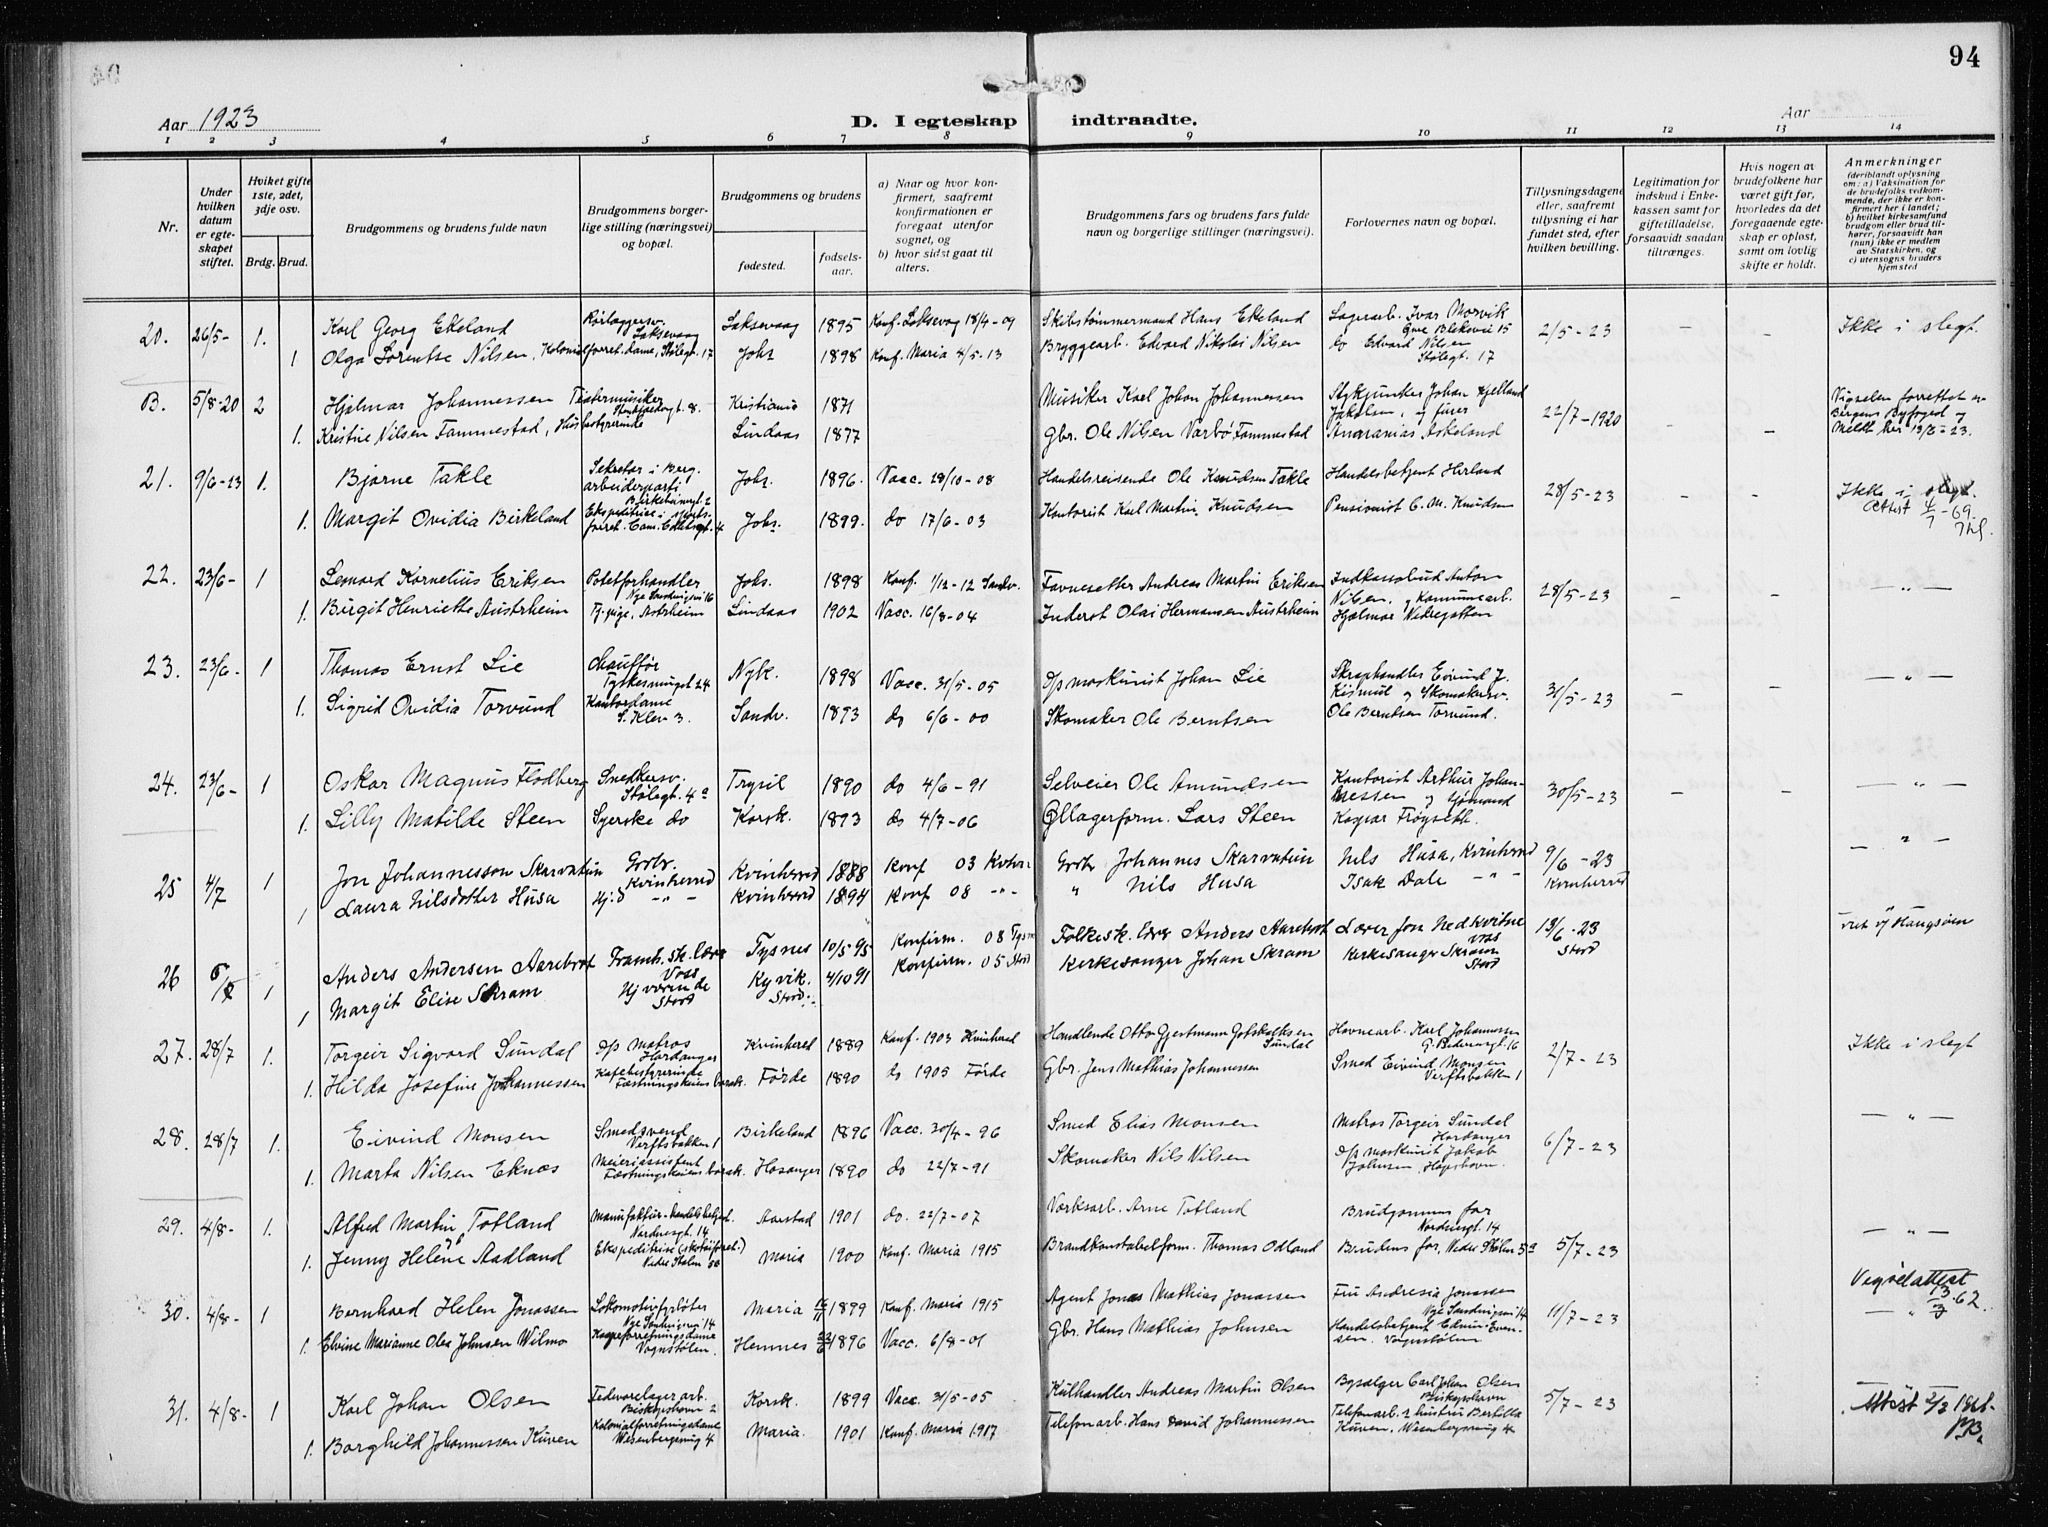 94
Aar 1923
D. I egteskap indtraadte.
Aar
1 2 3 4 5 6 7 8 9 10 11 12 13 14
Nr.
Under hvilken datum er egteskapet stiftet.
Hviket gifte 1ste, 2det, 3dje osv.
Brdg. Brud.
Brudgommens og brudens fulde navn
Brudgommens borgerlige stilling (næringsvei) og bopæl.
Brudgommens og brudens
fødested.
fødselsaar.
a) Naar og hvor konfirmert, saafremt konfirmationen er foregaat utenfor sognet, og
b) hvor sidst gaat til alters.
Brudgommens fars og brudens fars fulde navn og borgerlige stillinger (næringsvei).
Forlovernes navn og bopæl.
Tillysningsdagene eller, saafremt tillysning ei har fundet sted, efter hvilken bevilling.
Legitimation for indskud i Enkekassen samt for giftetilladelse, forsaavidt saadan tiltrænges.
Hvis nogen av brudefolkene har været gift før, hvorledes da det foregaaende egteskap er opløst, samt om lovlig skifte er holdt.
Anmerkninger (deriblandt oplysning om: a) Vaksination for de brudefolks vedkommende, der ikke er konfirmert her i landet; b) hvilket kirkesamfund brudgom eller brud tilhører, forsaavidt han (hun) ikke er medlem av Statskirken, og c) utensogns bruders hjemsted
20. 26/5- 1. Karl Georg Ekeland Rørlæggersv. Laksevaag Laksevaag 1895 Konf. Laksevaag 18/4-09 Skibstømmermand Hans Ekeland Lagerarb. Ivar Morvik 2/5-23 - - Ikke i slegt.
1 Olga Lorentse Nilsen, Kolonialforret.dame, Stølegt. 17 Johs 1898 Konf. Maria 4/5-13 Bryggearb. Edvard Nikolai Nilsen do Edvard Nilsen Stølegt. 17
B. 5/8-20 2 Hjalmar Johannessen Teatermusiker Kristiania 1871 Musiker Karl Johan Johannessen Stykjunker Johan Kjelland Jakobsen, og 22/7-1920 - - Vigselen forrettet av Bergens Byfoged og Meldt her 12/6-23.
1. Kristine Nilsen Fammestad, Husbestyrerinde Lindaas 1877 Gbr. Ole Nilsen Varbø Fammestad Ananias Askeland
21. 9/6-23 1. Bjarne Takle Sekretær i Berg. arbeiderparti Johs. 1896. Vacc. 28/10-08 Handelsreisende Ole Knudsen Takle Handelsbetjent Herland 28/5-23 - - Ikke i slegt. Attest
1. Margit Ovidia Birkeland Johs. 1899. do 17/6-03 Kontorist Karl Martin Knudsen Pensionist C. M. Knudsen
22. 23/6- 1 Lenard Kornelius Eriksen Potetforhandler Johs. 1898 Konf. 1/12-12 Sandv. Favnesetter Andreas Martin Eriksen Indkassobud Anton Nilsen, og Kommunearb. 28/5-23 - - - " -
1. Birgit Henriette Austrheim Tj.pige, Austrheim Lindaas 1902 Vacc. 16/8-04 Inderst Olai Hermansen Austrheim Hjalmar Nedregotten
23. 23/6- 1 Thomas Ernst Lie Chauffør Nyk. 1898 Vacc. 31/5-05 d/p maskinist Johan Lie Skraphandler Eivind J. Kismul og Skomakersv. 31/5-23 - - - " -
1. Sigrid Ovidia Torvund Kontordame S. Klev 3. Sandv. 1893 do 6/6-00 Skomaker Ole Berntsen Ole Berntsen Torvund.
24. 23/6- 1 Oskar Magnus Flodberg Snedkersv. Stølegt. 4a Trysil 1890 do 4/6-91 Selveier Ole Amundsen Kontorist Arthur Johannessen og sjømand 30/5-23 - - - " -
1. Lilly Matilde Steen Syerske do Korsk. 1893 do 4/7-06 Øllagerform. Lars Steen Kaspar Frøyseth.
25 4/7 1 Jon Johannesson Skarvatun Gbrbr. Kvinherred Kvinherred 1888 Konf 03 Kvinh. Gbrbr Johannes Skarvatun Nils Husa, Kvinherred 9/6-23 Kvinherred - " -
1 Laura Nilsdotter Husa Hj.d - " - Kvinherred 1894 Konf 08 - " - " Nils Husa Isak Dale - " -
26 1 Anders Andersen Aarebrot Framh. sk. lærer Voss Tysnes 10/5 95 Konfirm. 08 Tysn Folkesk. lærer Anders Aarebrot Lærer Jon Nedkvitne Voss 13/6-23 Stord
1 Margit Elise Skram Hjværende Stord Kyvik. Stord 4/10 91 Konfirm. 05 Stord Kirkesanger Johan Skram Kirkesanger Skram Stord
27. 28/7 1. Torgeir Sigvard Sundal d/p matros Hardanger Kvinhered 1889 Konf. 1903 Kvinhered Handlende Otto Gjertmann Gotskalksen Sundal Havnearb. Karl Johannessen 2/7-23 Ikke i slegt
1. Hilda Josefine Johannessen Kafebestyrerinde Førde 1890 do 1905 Førde Gbr. Jens Mathias Johannessen Smed Eivind Monsen Verftsbakken 1
28. 28/7 1. Eivind Monsen Smedsvend Verftsbakken 1 Birkeland 1896 Vacc. 30/4-96 Smed Elias Monsen Matros Torgeir Sundal Hardanger 6/7-23 - " -
1. Marta Nilsen Eknæs Meieriassistent Hosanger 1890 do 22/7-91 Skomaker Nils Nilsen d/p maskinist Jakob Johnsen,
29. 4/8- 1. Alfred Martin Totland Manufaktur-handelsbetjent. Nordnesgt. 14 Aarstad 1901 do. 22/7-07 Værksarb. Arne Totland Brudgommens far Nordnesgt. 14 5/7-23 - " -
1. Jenny Helene Aadland Ekspeditrise (skotøiforret.) Maria 1900 Konf. Maria 1915 Brandkonstabelform. Thomas Odland Brudens far, Nedre Stølen 5a
30. 4/8- 1 Bernhard Helen Jonassen Lokomotivfyrbøter Nye Sandviksvei 14 Maria 1899 Konf. Maria 1915 Agent Jonas Mathias Jonassen Fru Andresia Jonassen Nye Sandviksvei 14 11/7-23 Vigselattest - " -
1. Elvine Marianne Olea Johnsen Wilmo Vognstølen. Hemnes 1896 Vacc. 6/8-01 Gbr. Hans Mathias Johnsen Handelsbetjent Edvin Evensen. Vognstølen
31. 4/8- 1 Karl Johan Olsen Fedevarelagerarb. Biskopshavn 2 Korsk. 1899 Vacc. 31/5-05 Kulhandler Andreas Martin Olsen Bysælger Carl Johan Olsen Biskopshavn 5/7-23 Attest
1. Borghild Johannessen Kuven Kolonialforretningsdame Wesenbergsmug 4 Maria. 1901 Konf. Maria 1917 Telefonarb. Hans David Johannessen Telefonarb. Bertilla Kuven, Wesenbergsmug 4